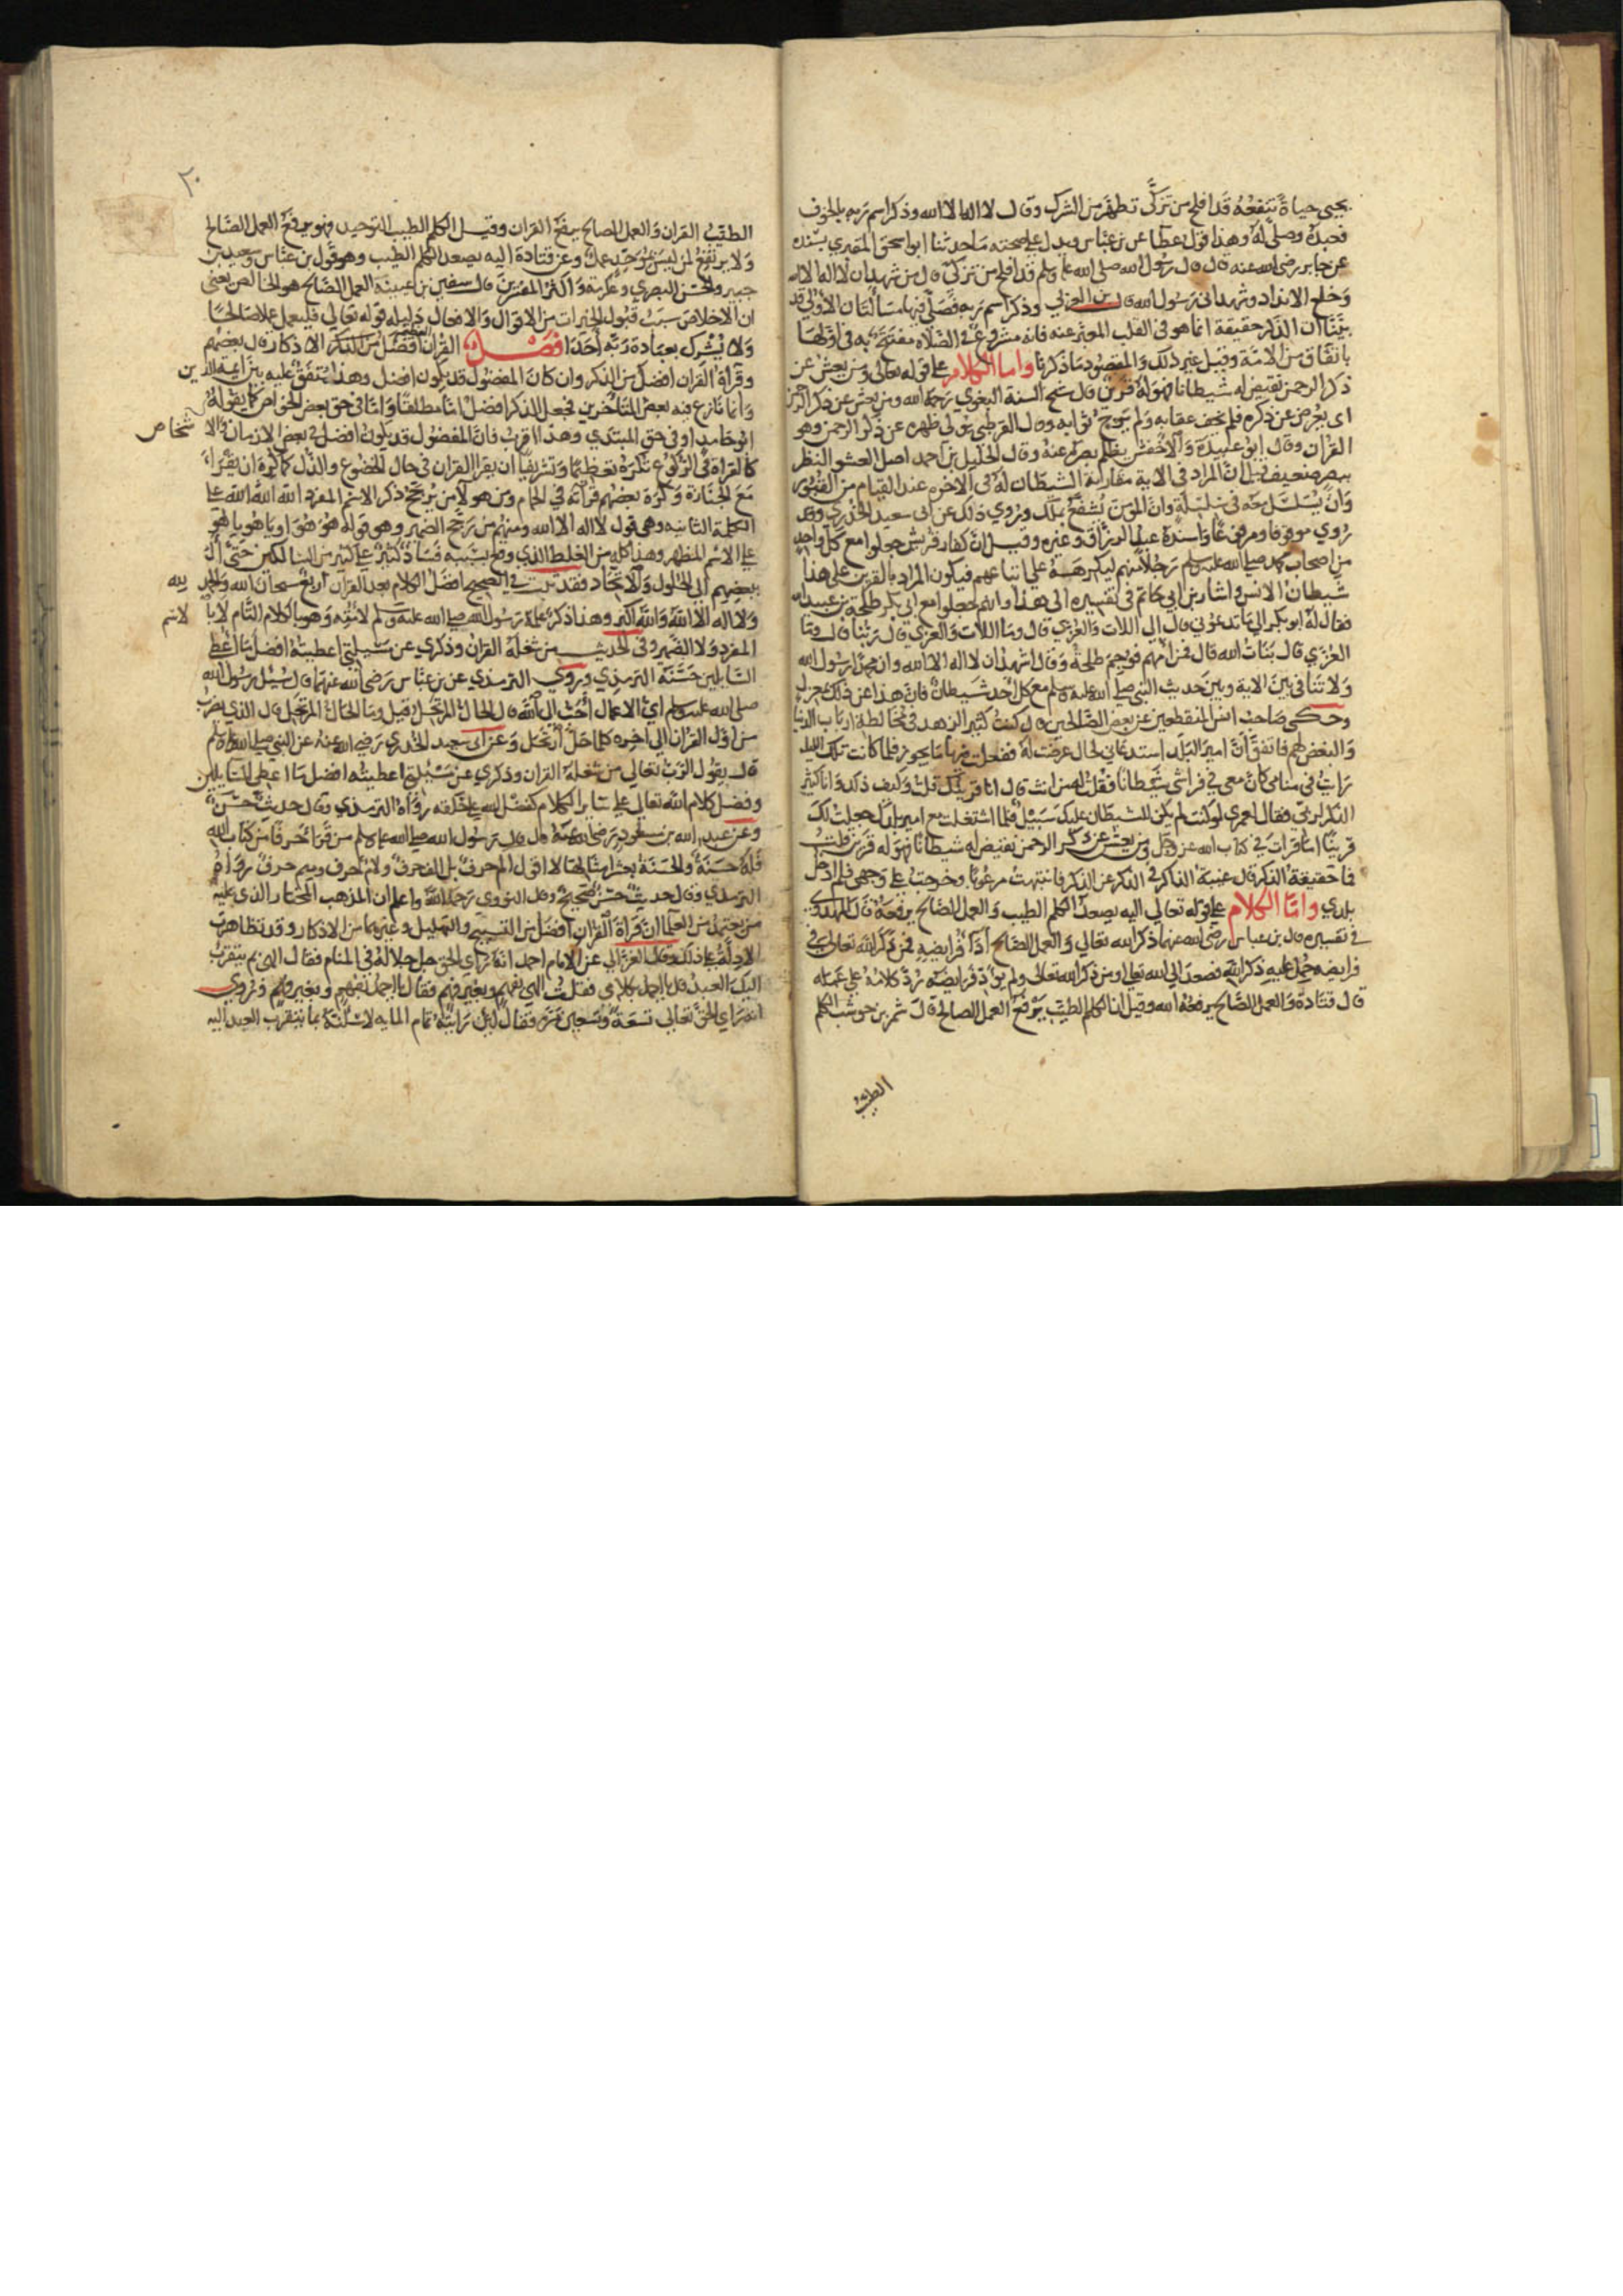 يحيى حياة تنفعه قد افلح من تزكى تطهر من الشرك وقال لا اله الا الله وذكر اسم ربه بالخوف
فعبده وصلى له وهذا قول عطا عن بن عباس ويدل على صحته ما حدثنا ابو اسحق المقري بسنده
عن جابر رضي الله عنه قال قال رسول الله صلى الله عليه وسلم قد افلح من تزكى قال من شهد ان لا اله الا الله
وخلع الانداد وشهد اني رسول الله قال بن العربي وذكر اسم ربه فصلى فيها مسألتان الاولى قد
بينا ان الذكر حقيقة انما هو في القلب المعبر عنه فانه مشروع في الصلاة مفتتح به في اولها
باتفاق من الامة وقيل غير ذلك والمقصود ما ذكرنا واما الكلام على قوله تعالى ومن يعش عن
ذكر الرحمن نقيض له شيطانا فهو له قرين قال محيي السنة البغوي رحمه الله ومن يعش عن ذكر الرحمن
اي يعرض عن ذكره فلم يخف عقابه ولم يرج ثوابه وقال القرطبي يولي ظهره عن ذكر الرحمن وهو
القران وقال ابو عبيدة والاخفش يظلم بصره عنه وقال الخليل بن احمد اصل العشو النظر
ببصر ضعيف قيل ان المراد في الاية مقارنة الشيطان له في الاخره عند القيام من القبور
وان يسلسل معه في سلسلة وان المومن يشفع بملك وروي ذلك عن ابي سعيد الخدري وقد
روي موقوفا ومرفوعا واسنده عبد الرزاق وغيره وقيل ان كفار قريش جعلوا مع كل واحد
من اصحاب محمد صلى الله عليه وسلم رجلا منهم فيكون المراد بالقرين على هذا
شيطان الانس واشار بن ابي حاتم في تفسيره الى هذا وانهم جعلوا مع ابي بكر طلحة بن عبيد الله
فقال له ابو بكر الى ما تدعوني قال الى اللات والعزي قال وما اللات والعزي قال ربنا قال وما
العزي قال بنات الله قال فمن امهم فوجم طلحة وقال اشهد ان لا اله الا الله وان محمدا رسول الله
ولا تنافي بين الاية وبين حديث النبي صلى الله عليه وسلم مع كل احد شيطان فان هذا عن ذلك بمعزل
وحكى صاحب انس المنقطعين عن بعض الصالحين قال كنت كثير الزهد في مخالطة ارباب الدنيا
والبغض لهم فاتفق ان امير البلد استدعاني لحال عرضت له ففعلت فلما كانت تلك الليلة
رايت في منامي كان معي في فراشي شيطانا فقلت له من انت قال انا قرينك قلت وكيف ذلك وانا كثير
الذكر لربي فقال لعمري لو كنت لم يكن للشيطان عليك سبيل فلما اشتغلت مع امير بلدك جعلت لك
قرينا اما قرات في كتاب الله عز وجل ومن يعش عن ذكر الرحمن نقيض له شيطانا فهو له قرين قلت
فما حقيقة الذكر قال غيبة الذاكر في الذكر عن الذكر فانتبهت مرعوبا وخرجت على وجهي فلم ادخل
بلدي واما الكلام على قوله تعالى اليه يصعد الكلم الطيب والعمل الصالح يرفعه قال المهدوي
في تفسيره قال بن عباس رضي الله عنهما ذكر الله تعالى والعمل الصالح أدا فرايضه فمن ذكر الله تعالى في
فرايضه حمل عليه ذكر الله فصعد الى الله تعالى ومن ذكر الله تعالى ولم يؤد فرايضه رد كلامه على عمله
قال قتادة والعمل الصالح يرفعه الله وقيل ان الكلم الطيب يرفع العمل الصالح قال شهر بن حوشب الكلم
الطيب
٢٠
الطيب القران والعمل الصالح يرفع القران وقيل الكلم الطيب التوحيد فهو يرفع العمل الصالح
ولا يرتفع لمن ليس بموحد عمل وعن قتادة اليه يصعد الكلم الطيب وهو قول بن عباس وسعيد بن
جبير والحسن البصري وعكرمة واكثر المفسرين قال سفين بن عيينة العمل الصالح هو الخالص يعني
ان الاخلاص سبب قبول الخيرات من الاقوال والافعال دليله قوله تعالى فليعمل عملا صالحا
ولا يشرك بعبادة ربه أحدا فصل القران افضل من الذكر الاذكار قال بعضهم
وقراة القران افضل من الذكر وان كان المفضول قد يكون افضل وهذا متفق عليه بين ائمة الدين
وانما نازع فيه بعض المتاخرين فجعل الذكر افضل اما مطلقا واما في حق بعض الخواص كما يقوله
ابو حامد او في حق المبتدي وهذا اقرب فان المفضول قد يكون افضل في بعض الازمان والا شخاص
كالقراة في الركوع تكره تعظيما وتشريفا ان يقرا القران في حال الخضوع والذل كما كره ان يقرا
مع الجنازة وكره بعضهم قراته في الحمام ومن هولا من يرجح ذكر الاسم المفرد الله الله الله على
الكلمة الثانيه وهي قول لا اله الا الله ومنهم من رجح الضمير وهو قوله هو هو هو او يا هو يا هو
على الاسم المظهر وهذا كله من الغلط الذي وقع بسببه فساد كثير على كثير من السالكين حتى ال
ببعضهم الى الحلول والاتحاد فقد ثبت في الصحيح افضل الكلام بعد القران اربع سبحان الله والحمد لله
ولا اله الا الله والله اكبر وهذا ذكر علمه رسول الله صلى الله عليه وسلم لامته وهو بالكلام التام لا بالاسم
المفرد ولا الضمير وفي الحديث من شغله القران وذكري عن مسئلتي اعطيته افضل ما اعطي
السايلين حسنه الترمذي وروي الترمذي عن بن عباس رضي الله عنهما قال سئل رسول الله
صلى الله عليه وسلم اي الاعمال احب الى الله قال الحال المرتحل قيل وما الحال المرتحل قال الذي يضرب
من اول القران الى اخره كلما حل ارتحل وعن ابي سعيد الخدري رضي الله عنه عن النبي صلى الله عليه وسلم
قال يقول الرب تعالى من شغله القران وذكري عن مسئلتي اعطيته افضل ما اعطي السايلين
وفضل كلام الله تعالى على ساير الكلام كفضل الله على خلقه رواه الترمذي وقال حديث حسن
وعن عبد الله بن مسعود رضي الله عنه قال قال رسول الله صلى الله عليه وسلم من قرا حرفا من كتاب الله
فله حسنة والحسنة بعشر امثالها لا اقول الم حرف بل الف حرف ولام حرف وميم حرف رواه
الترمذي وقال حديث حسن صحيح وقال النووي رحمه الله واعلم ان المذهب المختار الذي عليه
من يعتمد من العلما ان قراة القران افضل من التسبيح والتهليل وغيرهما من الاذكار وقد تظاهرت
الادلة على ذلك وقال الغزالي عن الامام احمد انه راي الحق جل جلاله في المنام فقال الهي بم يتقرب
اليك العبد قال يا احمد بكلامي فقلت الهي بفهم وبغير فهم فقال يا احمد بفهم وبغير فهم وروي
انه راي الحق تعالى تسعة وتسعين مرة فقال لين رايته تمام المايه لاسئلنه بما يتقرب العبد اليه